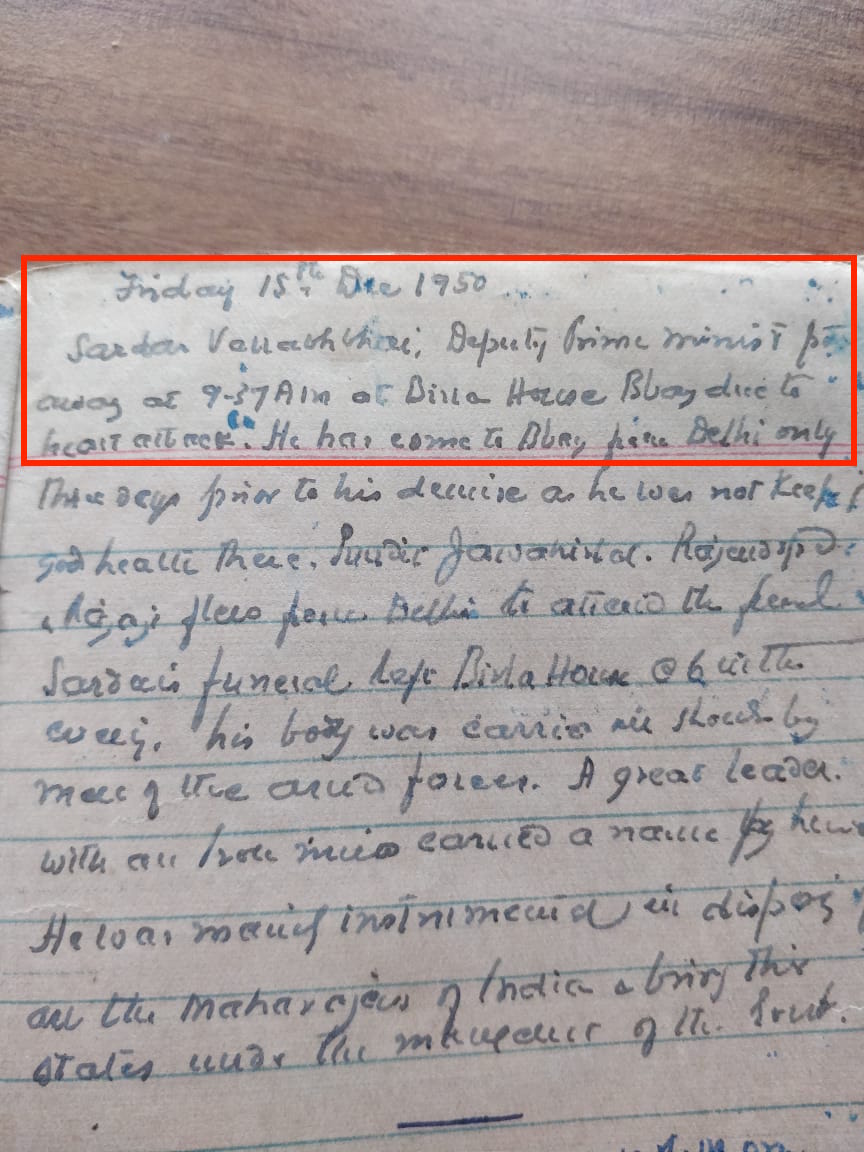 Friday 15th Dec 1950
Sardar Vallabhbhai, Deputy Prime minist
away at 9-37 AM at Birla House Bbay due to
heart attack. He has come to Bbay from Delhi only
three days prior to his demise as he was not keep
good health there. Pundit Jawahirlal. Rajendrprd
& Rajaji flew from Delhi to attend the funeral
Sardar's funeral left Birla House @ 6 in the
eveng. his body was carried on by
men of the armed forces. A great leader.
with an Iron mind earned a name for
He was mainly instrumental in dispos
all the Maharajas of India & bring their
states under the of the Govt.